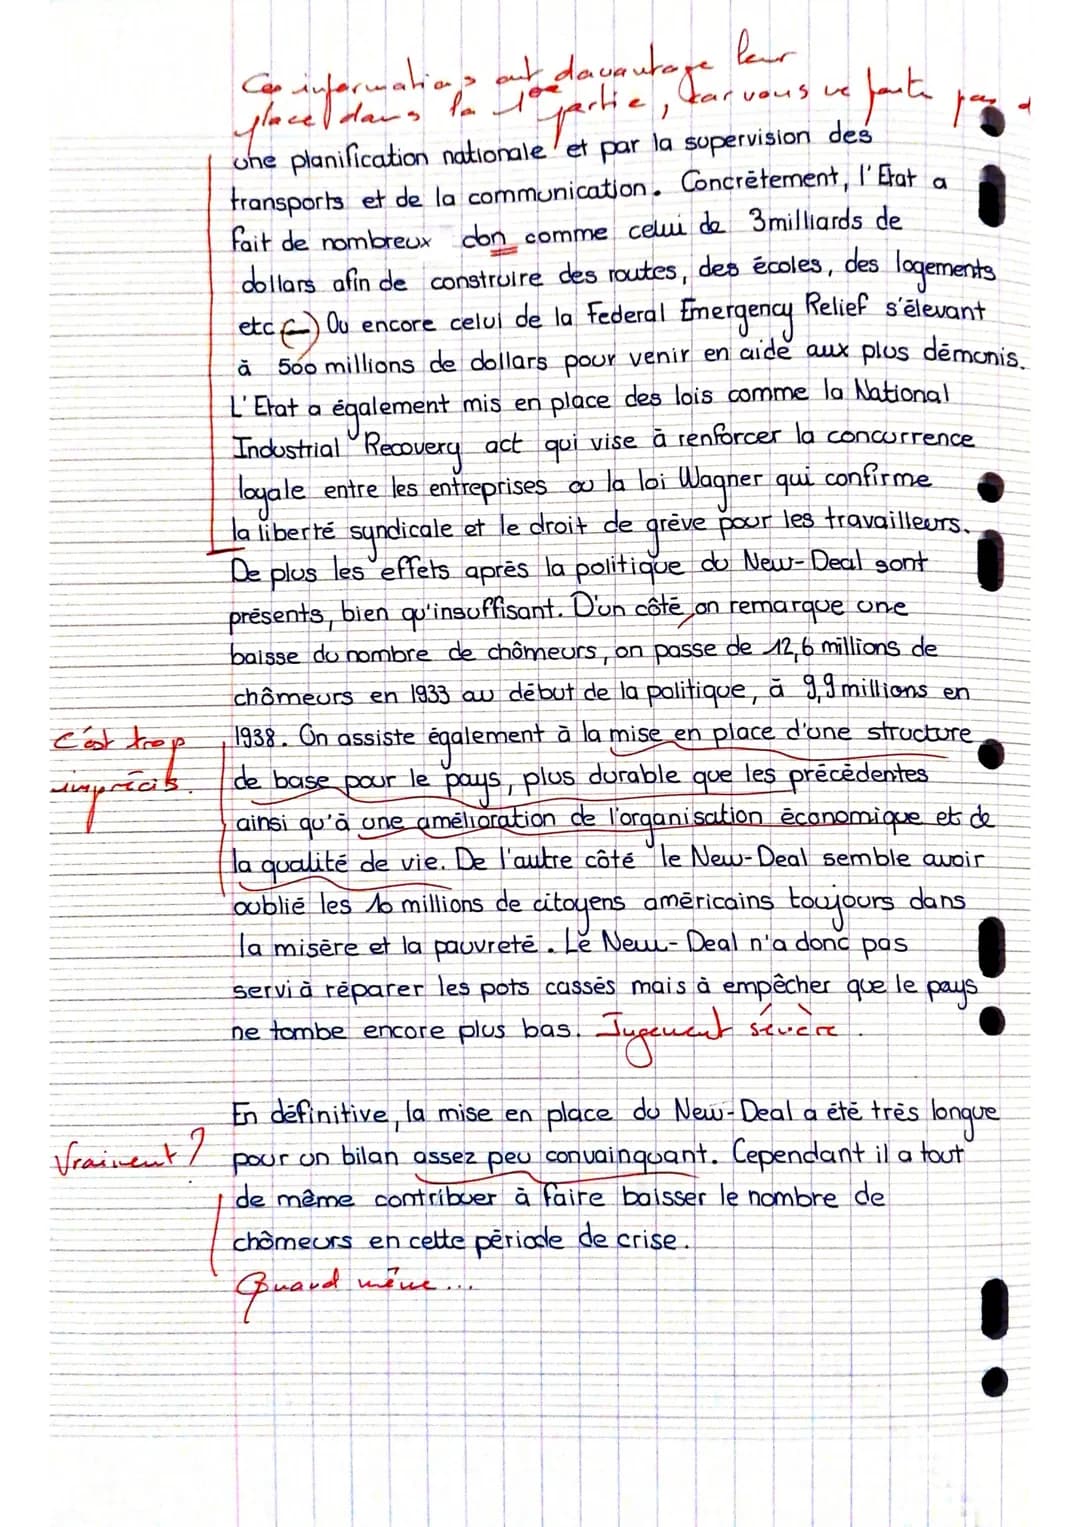 Ces informations ont davantage leur
place dans la 1ère partie, car vous ne faute pas d
une planification nationale et par la supervision des
transports et de la communication. Concrètement, l'Etat a
fait de nombreux don comme celui de 3milliards de
dollars afin de construire des routes, des écoles, des logements
etc (-) Ou encore celui de la Federal Emergency Relief s'élevant
à 500 millions de dollars pour venir en aide aux plus démonis.
L'Etat a également mis en place des lois comme la National
Industrial Recovery act qui vise à renforcer la concurrence
loyale entre les entreprises ou la loi Wagner qui confirme
la liberté syndicale et le droit de grève pour les travailleurs.
De plus les effets après la politique du New-Deal sont
présents, bien qu'insuffisant. D'un côté, on remarque une
baisse du nombre de chômeurs, on passe de 12,6 millions de
chômeurs en 1933 au début de la politique, à 9,9 millions en
C'est trop 1938. On assiste également à la mise en place d'une structure
imprécis. de base pour le pays, plus durable que les précédentes
ainsi qu'à une amélioration de l'organisation économique et de
la qualité de vie. De l'autre côté le New-Deal semble avoir
oublié les 10 millions de citoyens américains toujours dans
la misère et la pauvreté. Le New-Deal n'a donc pas
servi à réparer les pots cassés mais à empêcher que le pays
ne tombe encore plus bas. Jugement sévère.
En définitive, la mise en place du New-Deal a été très longue
Vraiment? pour un bilan assez peu convainquant. Cependant il a tout
de même contribuer à faire baisser le nombre de
chômeurs en cette période de crise.
Quand même...